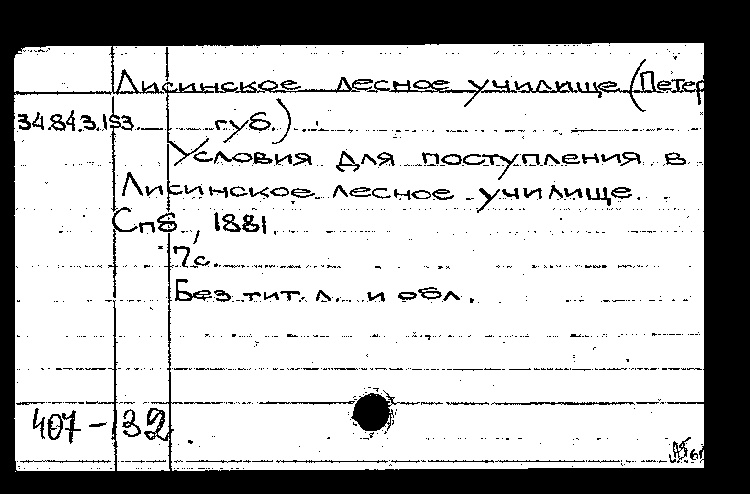 Лисинское лесное училище (Петер
34.84.3.153 губ.)
Условия для поступления в
Лисинское лесное училище.
Спб, 1881.
7с.
Без тит. л. и обл.
407-132